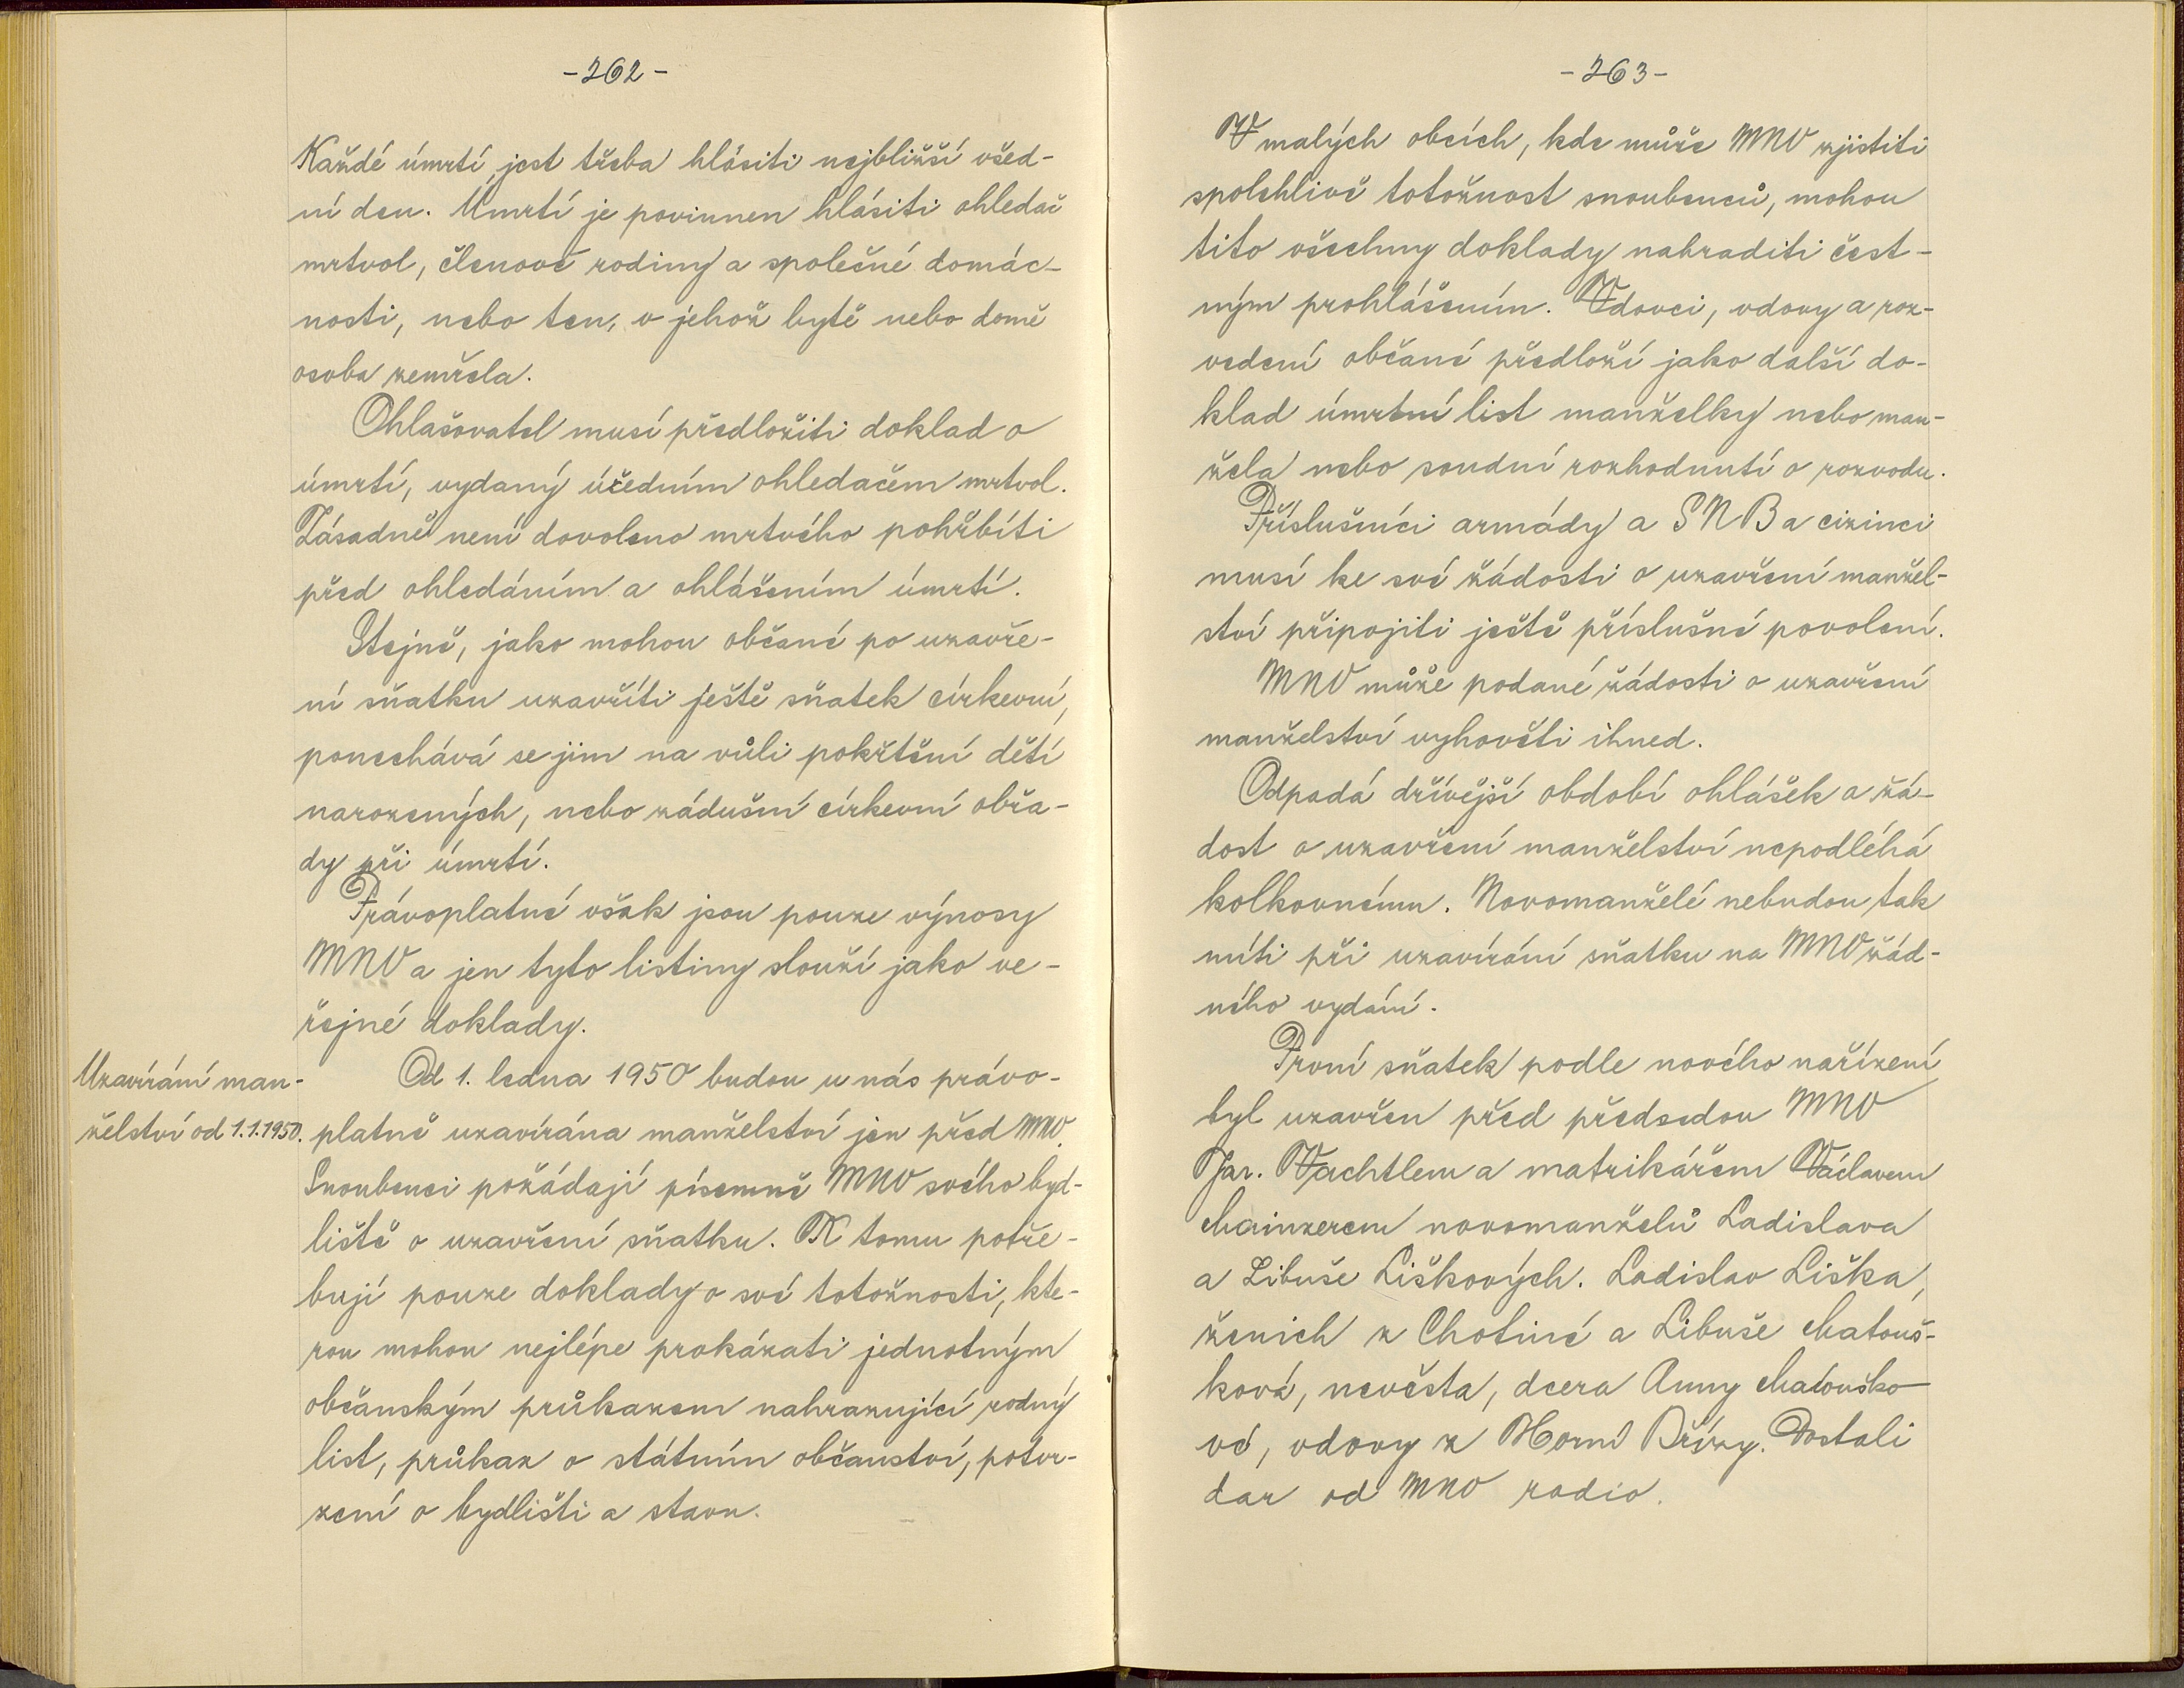 -262-
Každé úmrtí jest třeba hlásiti nejbližší všed-
ní den. Úmrtí je povinnen hlásiti ohledač
mrtvol, členové rodiny a společné domác-
nosti, nebo ten, v jehož bytě nebo domě
osoba zemřela.
Ohlašovatel musí předložiti doklad o
úmrtí, vydaný úředním ohledačem mrtvol.
Zásadně není dovoleno mrtvého pohřbíti
před ohledáním a ohlášením úmrtí.
Stejně, jako mohou občané po uzavře-
ní sňatku uzavříti ještě sňatek církevní,
ponechává se jim na vůli pokřtění dětí
narozených, nebo zádušní církevní obřa-
dy při úmrtí.
Právoplatné však jsou pouze výnosy
MNV a jen tyto listiny slouží jako ve-
řejné doklady.
Uzavírání man-
želství od 1.1.1950.
Od 1. ledna 1950 budou u nás právo-
platně uzavírána manželství jen před MNV.
Snoubenci požádají písemně MNV svého byd-
liště o uzavření sňatku. K tomu potře-
bují pouze doklady o své totožnosti, kte-
rou mohou nejlépe prokázati jednotným
občanským průkazem nahrazující rodný
list, průkaz o státním občanství, potvr-
zení o bydlišti a stavu.
-263-
V malých obcích, kde může MNV zjistiti
spolehlivě totožnost snoubenců, mohou
tito všechny doklady nahraditi čest-
ným prohlášením. Vdovci, vdovy a roz-
vedení občané předloží jako další do-
klad úmrtní list manželky nebo man-
žela nebo soudní rozhodnutí o rozvodu.
Příslušníci armády a SNB a cizinci
musí ke své žádosti o uzavření manžel-
ství připojiti ještě příslušné povolení.
MNV může podané žádosti o uzavření
manželství vyhověti ihned.
Odpadá dřívější období ohlášek a žá-
dost o uzavření manželství nepodléhá
kolkovnému. Novomanželé nebudou tak
míti při uzavírání sňatku na MNV žád-
ného vydání.
První sňatek podle nového nařízení
byl uzavřen před předsedou MNV
Jar. Wachtlem a matrikářem Václavem
Mainzerem novomanželů Ladislava
a Libuše Liškových. Ladislav Liška,
ženich z Chotiné a Libuše Matouš-
ková, nevěsta, dcera Anny Matouško-
vé, vdovy z Horní Břízy. Dostali
dar od MNV radio.